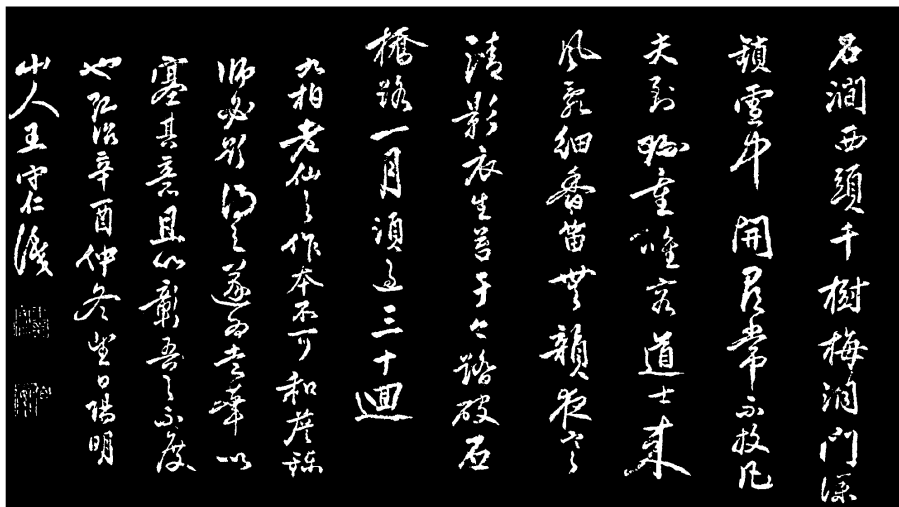 石澗西頭千樹梅洞門深
鎖雪中開尋常不放凡
夫到珍重惟容道士來
風亂細香笛無韻夜寒
清影衣生苔于今踏破石
橋路一月須過三十迴
九柏老仙之作本不可和詹鍊
師必欲得之遂為走筆以
塞其意且以彰吾之不度
也弘治辛酉仲冬望日陽明
山人王守仁識